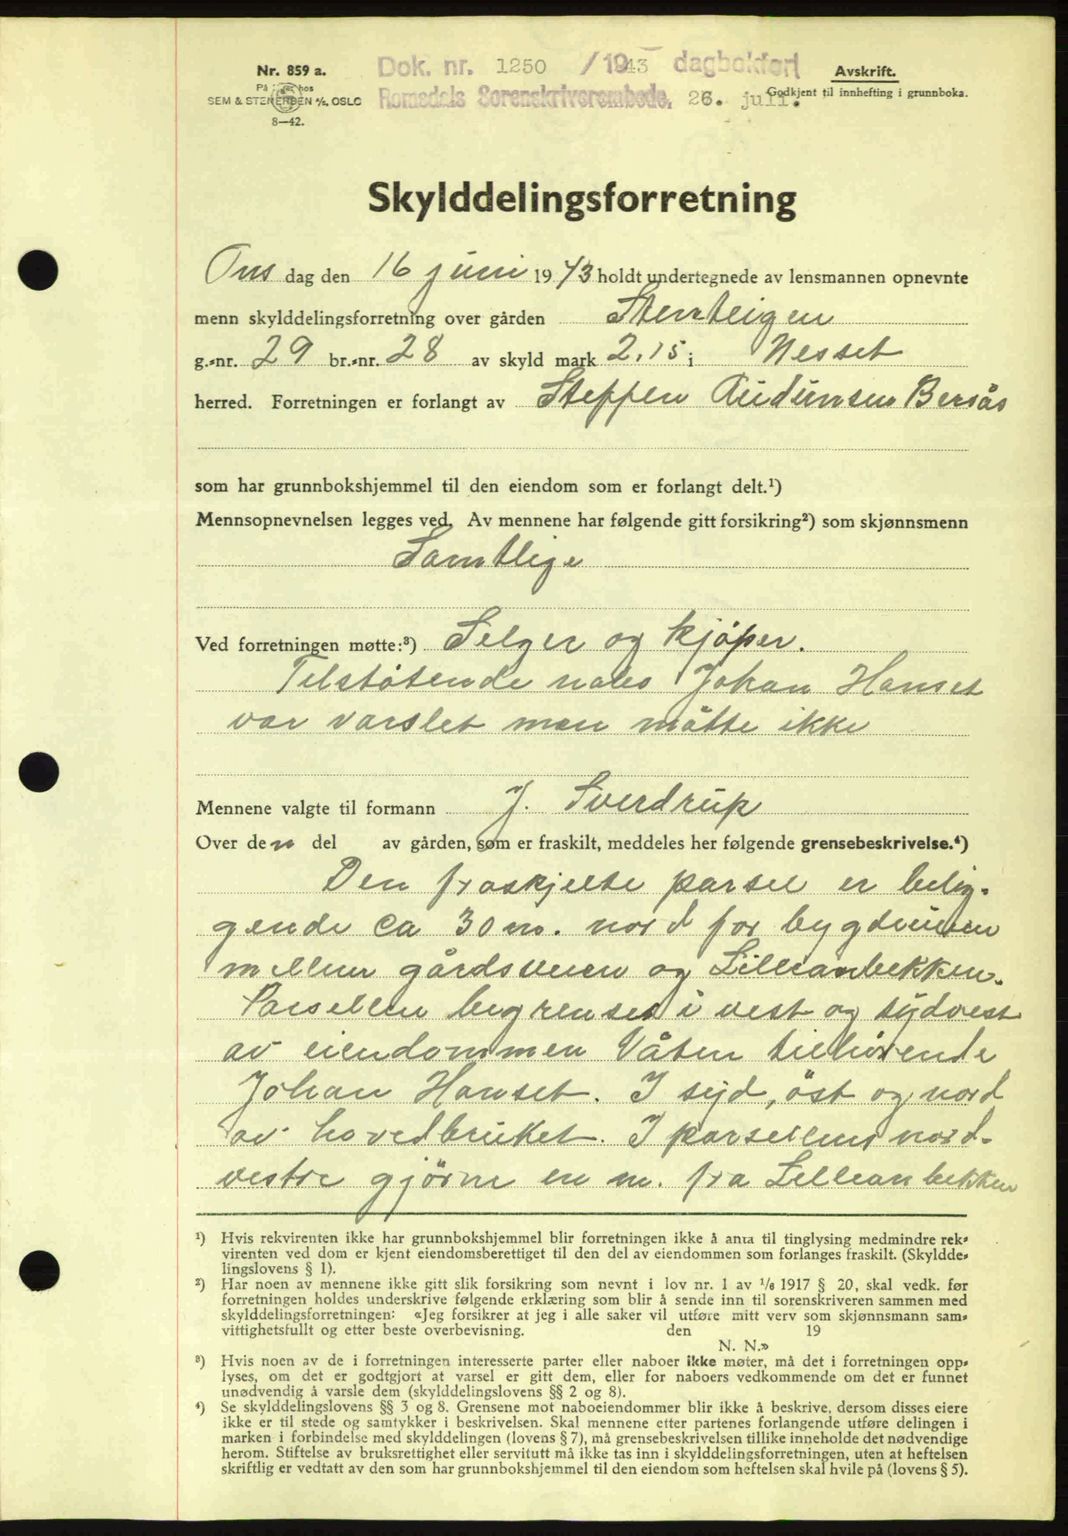 Nr. 859 a.
På lager hos
SEM & STENERSEN A/S, OSLO
8—42.
Dok. nr. 1250 /1943 dagbokført
Romsdals Sorenskriverembede, 26. juli.
Avskrift.
Godkjent til innhefting i grunnboka.
Skylddelingsforretning
Ons dag den 16 juni 1943 holdt undertegnede av lensmannen opnevnte
menn skylddelingsforretning over gården Stenteigen
g.-nr. 29 br.-nr. 28 av skyld mark 2,15 i Nesset
herred. Forretningen er forlangt av Steffen Audunsen Bersås
som har grunnbokshjemmel til den eiendom som er forlangt delt.¹)
Mennsopnevnelsen legges ved. Av mennene har følgende gitt forsikring²) som skjønnsmenn
Samtlige
Ved forretningen møtte:³) Selger og kjøper.
Tilstøtende nabo Johan Hanset
var varslet men måtte ikke
Mennene valgte til formann J. Sverdrup
Over den del av gården, som er fraskilt, meddeles her følgende grensebeskrivelse.⁴)
Den fraskjelte parsel er belig-
gende ca 30 m. nord for bygdeveien
mellem gårdsveien og Lilleanbekken.
Parsellen begrenses i vest og sydvest
av eiendommen Våten tilhørende
Johan Hanset. I syd, öst og nord
av hovedbruket. I parsellens nord-
vestre gjörne en m. fra Lilleanbekken
¹) Hvis rekvirenten ikke har grunnbokshjemmel blir forretningen ikke å anta til tinglysing medmindre rek-
virenten ved dom er kjent eiendomsberettiget til den del av eiendommen som forlanges fraskilt. (Skyldde-
lingslovens § 1).
²) Har noen av mennene ikke gitt slik forsikring som nevnt i lov nr. 1 av ¹/₆ 1917 § 20, skal vedk. før
forretningen holdes underskrive følgende erklæring som blir å sende inn til sorenskriveren sammen med
skylddelingsforretningen: «Jeg forsikrer at jeg i alle saker vil utføre mitt verv som skjønnsmann sam-
vittighetsfullt og etter beste overbevisning. den 19
N. N.»
³) Hvis noen av de i forretningen interesserte parter eller naboer ikke møter, må det i forretningen opp-
lyses, om det er godtgjort at varsel er gitt dem, eller for naboers vedkommende om det er funnet
unødvendig å varsle dem (skylddelingslovens §§ 2 og 8).
⁴) Se skylddelingslovens §§ 3 og 8. Grensene mot naboeiendommer blir ikke å beskrive, dersom disses eiere
ikke er til stede og samtykker i beskrivelsen. Skal mennene etter partenes forlangende utføre delingen i
marken i forbindelse med skylddelingen (lovens § 7), må grensebeskrivelsen tillike inneholde det nødvendige
herom. Stiftelse av bruksrettighet eller servitutt må ikke tas inn i skylddelingsforretningen, uten at heftelsen
skriftlig er vedtatt av den som har grunnbokshjemmel til den eiendom som heftelsen skal hvile på (lovens § 5).